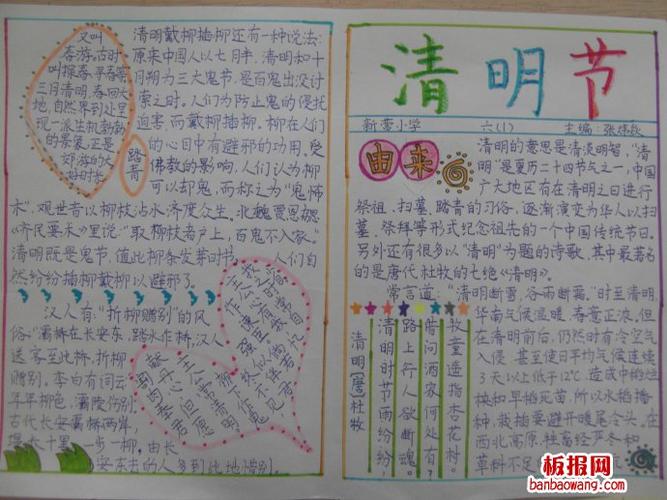 又叫
春游。古时
叫探春、寻春等。
三月清明，春回大
地，自然界到处呈
现一派生机勃勃
的景象，正是
郊游的大
好时光
踏青
清明戴柳插柳还有一种说法：
原来中国人以七月半、清明和十
月朔为三大鬼节，是百鬼出没讨
索之时。人们为防止鬼的侵扰
迫害，而戴柳插柳。柳在人们
的心目中有避邪的功用。受
佛教的影响，人们认为柳
可以却鬼，而称之为“鬼怖
木”，观世音以柳枝沾水济度众生。北魏贾思勰
《齐民要术》里说：“取柳枝著户上，百鬼不入家。”
清明既是鬼节，值此柳条发芽时节，人们自
然纷纷插柳戴柳以避邪了。
汉人有“折柳赠别”的风
俗：“灞桥在长安东，跨水作桥，汉人
送客至此桥，折柳
赠别。李白有词云：
年年柳色，灞陵伤别。
古代长安灞桥两岸，
堤长十里，一步一柳，由长
安东去的人多到此地惜别，
清明节
新营小学
六(1)
主编：张炜歆
由来
清明的意思是清淡明智，“清
明”是夏历二十四节气之一，中国
广大地区有在清明之日进行
祭祖、扫墓、踏青的习俗，逐渐演变为华人以扫
墓、祭拜等形式纪念祖先的一个中国传统节日。
另外还有很多以“清明”为题的诗歌，其中最著名
的是唐代杜牧的七绝《清明》。
常言道：“清明断雪，谷雨断霜。”时至清明，
华南气候温暖，春意正浓。但
在清明前后，仍然时有冷空气
入侵，甚至使日平均气温连续
3天以上低于12℃，造成中稻烂
秧和早稻死苗，所以水稻播
种、栽插要避开暖尾冷头。在
西北高原，牲畜经严冬和
草料不足
清明［唐］杜牧
清明时节雨纷纷，
路上行人欲断魂。
借问酒家何处有？
牧童遥指杏花村。
板报网
banbaowang.com